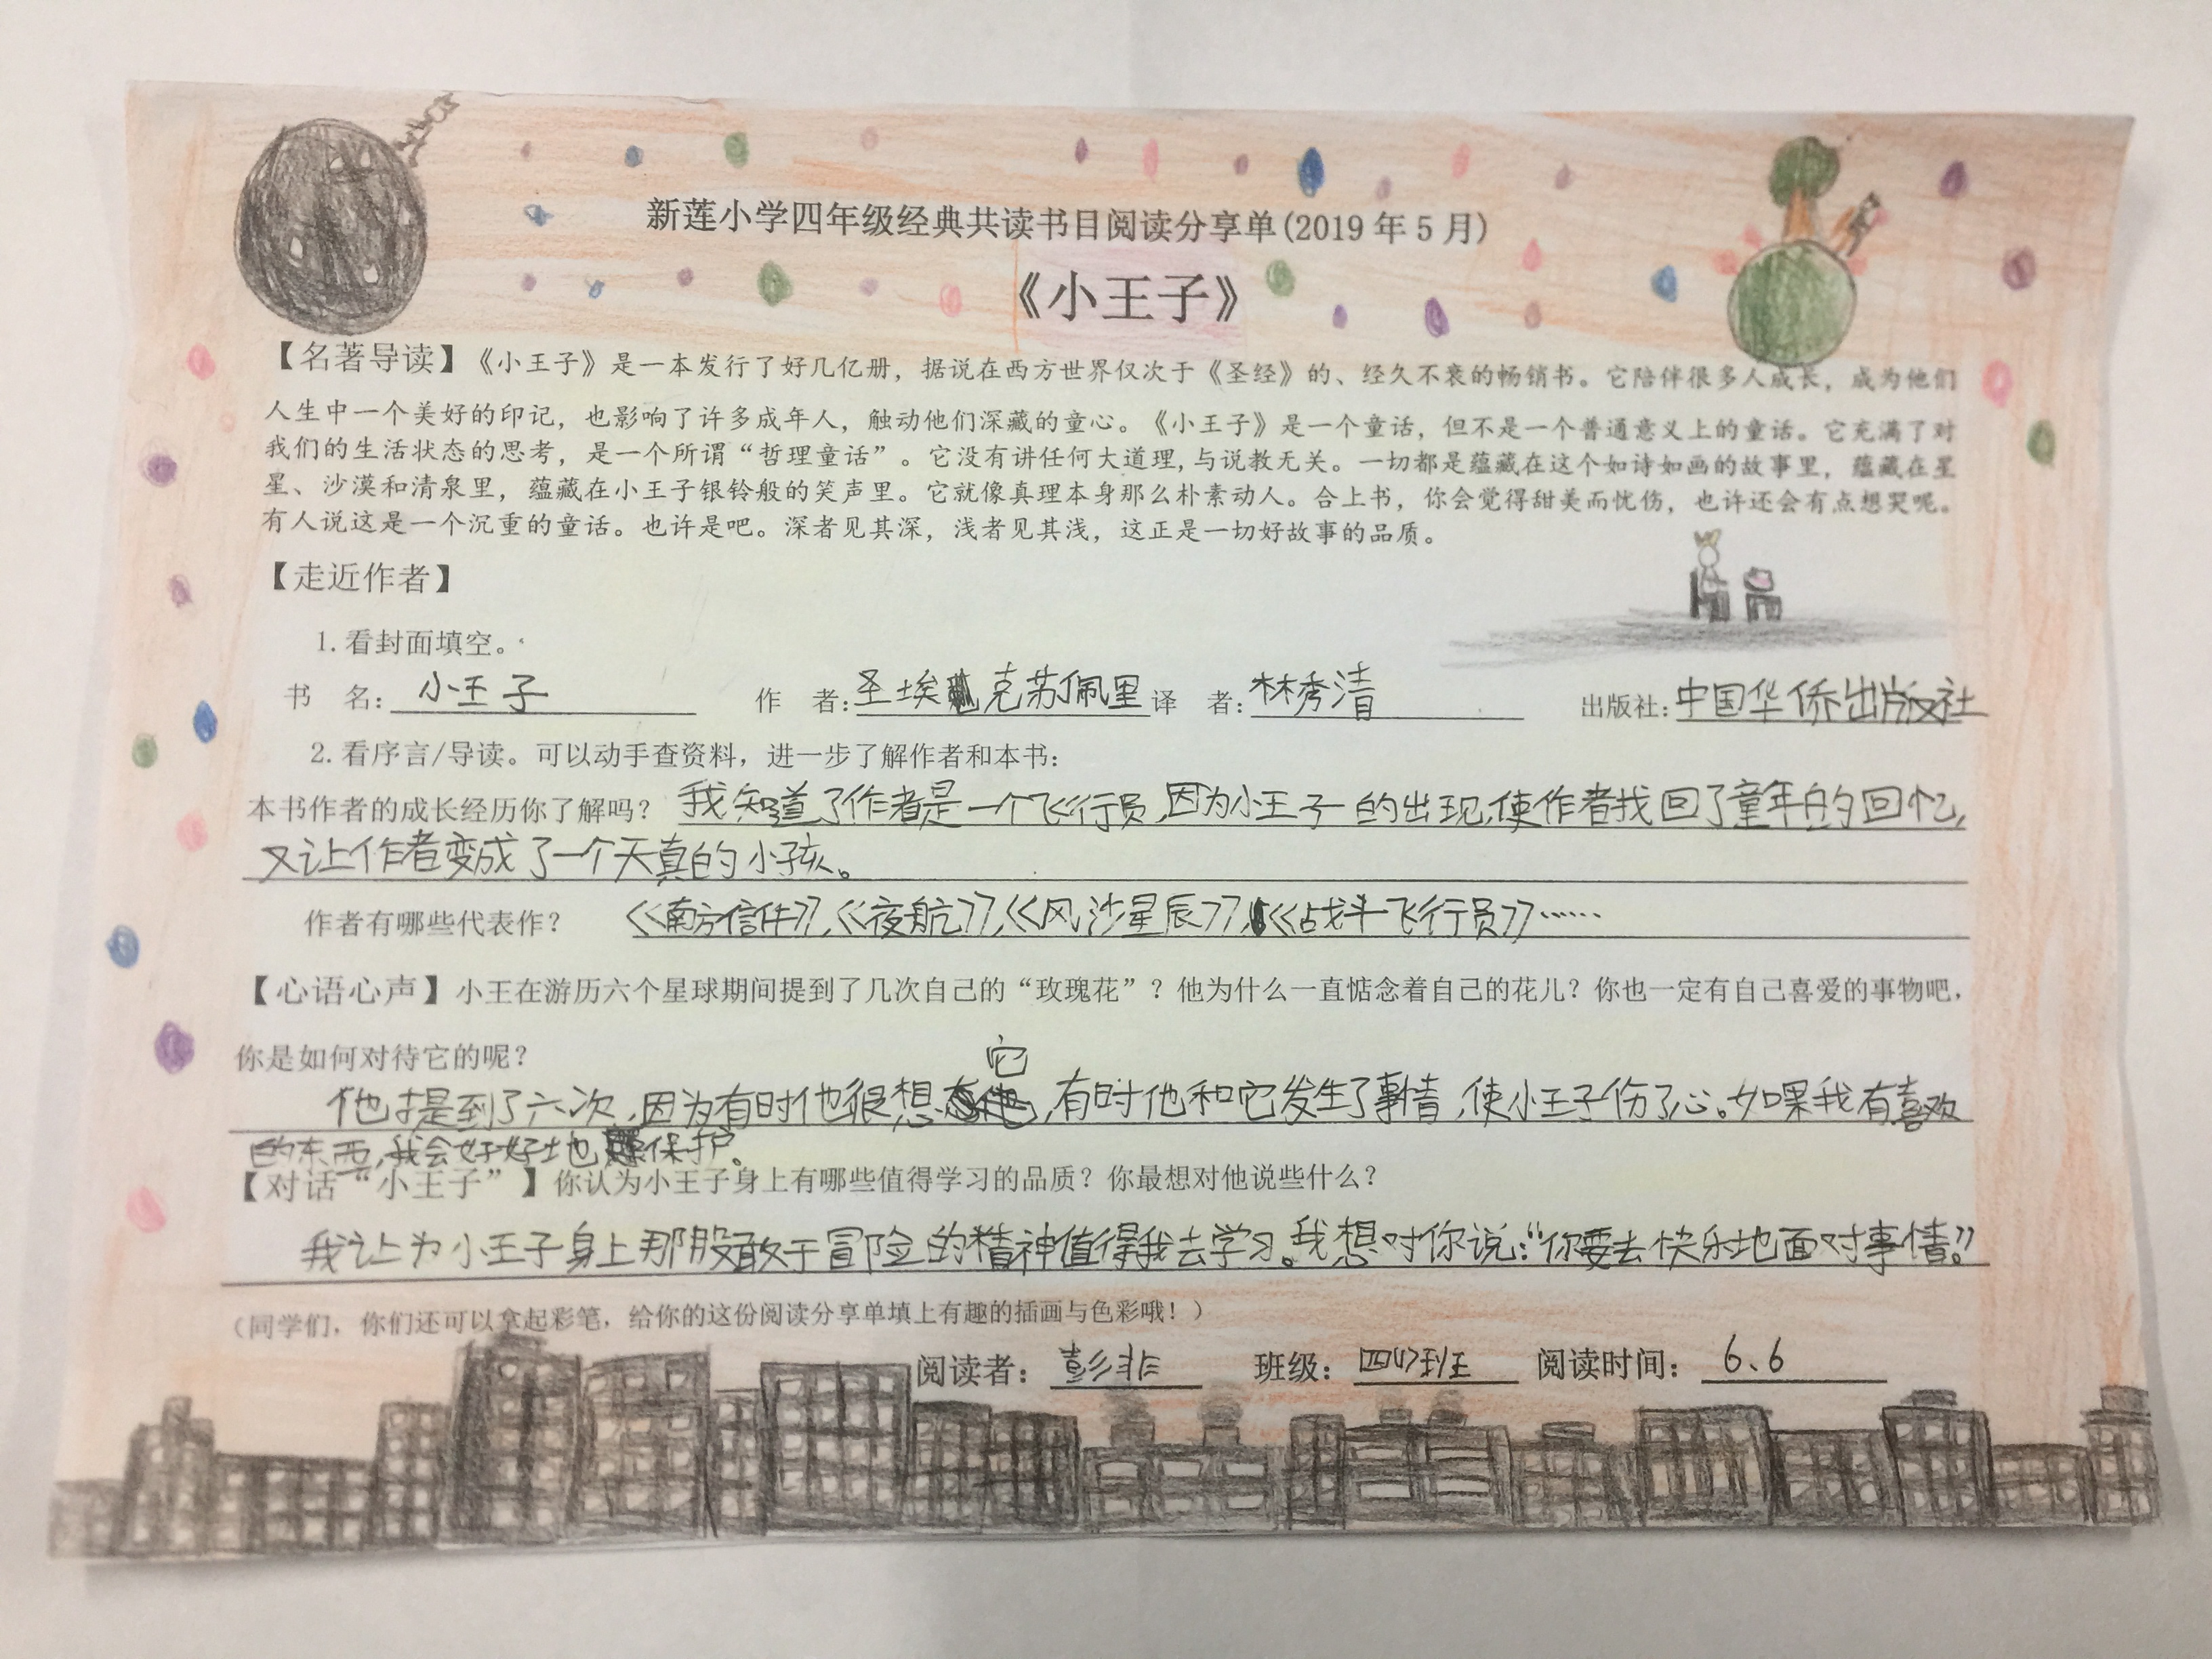 新莲小学四年级经典共读书目阅读分享单(2019年5月)
《小王子》
【名著导读】《小王子》是一本发行了好几亿册，据说在西方世界仅次于《圣经》的、经久不衰的畅销书。它陪伴很多人成长，成为他们
人生中一个美好的印记，也影响了许多成年人，触动他们深藏的童心。《小王子》是一个童话，但不是一个普通意义上的童话。它充满了对
我们的生活状态的思考，是一个所谓“哲理童话”。它没有讲任何大道理,与说教无关。一切都是蕴藏在这个如诗如画的故事里，蕴藏在星
星、沙漠和清泉里，蕴藏在小王子银铃般的笑声里。它就像真理本身那么朴素动人。合上书，你会觉得甜美而忧伤，也许还会有点想哭呢。
有人说这是一个沉重的童话。也许是吧。深者见其深，浅者见其浅，这正是一切好故事的品质。
【走近作者】
1.看封面填空。
书 名: 小王子 作 者:圣埃克苏佩里 译 者:林秀清 出版社:中国华侨出版社
2.看序言/导读。可以动手查资料，进一步了解作者和本书:
本书作者的成长经历你了解吗? 我知道了作者是一个飞行员,因为小王子的出现,使作者找回了童年的回忆,
又让作者变成了一个天真的小孩。
作者有哪些代表作? 《南方信件》,《夜航》,《风沙星辰》,《战斗飞行员》……
【心语心声】小王在游历六个星球期间提到了几次自己的“玫瑰花”?他为什么一直惦念着自己的花儿?你也一定有自己喜爱的事物吧,
你是如何对待它的呢?
他提到了六次,因为有时他很想它,有时他和它发生了事情,使小王子伤了心。如果我有喜欢
的东西,我会好好地保护。
【对话“小王子”】你认为小王子身上有哪些值得学习的品质?你最想对他说些什么?
我让为小王子身上那股敢于冒险的精神值得我去学习。我想对你说:“你要去快乐地面对事情。”
(同学们，你们还可以拿起彩笔，给你的这份阅读分享单填上有趣的插画与色彩哦!)
阅读者: 彭非 班级: 四(1)班 阅读时间: 6、6